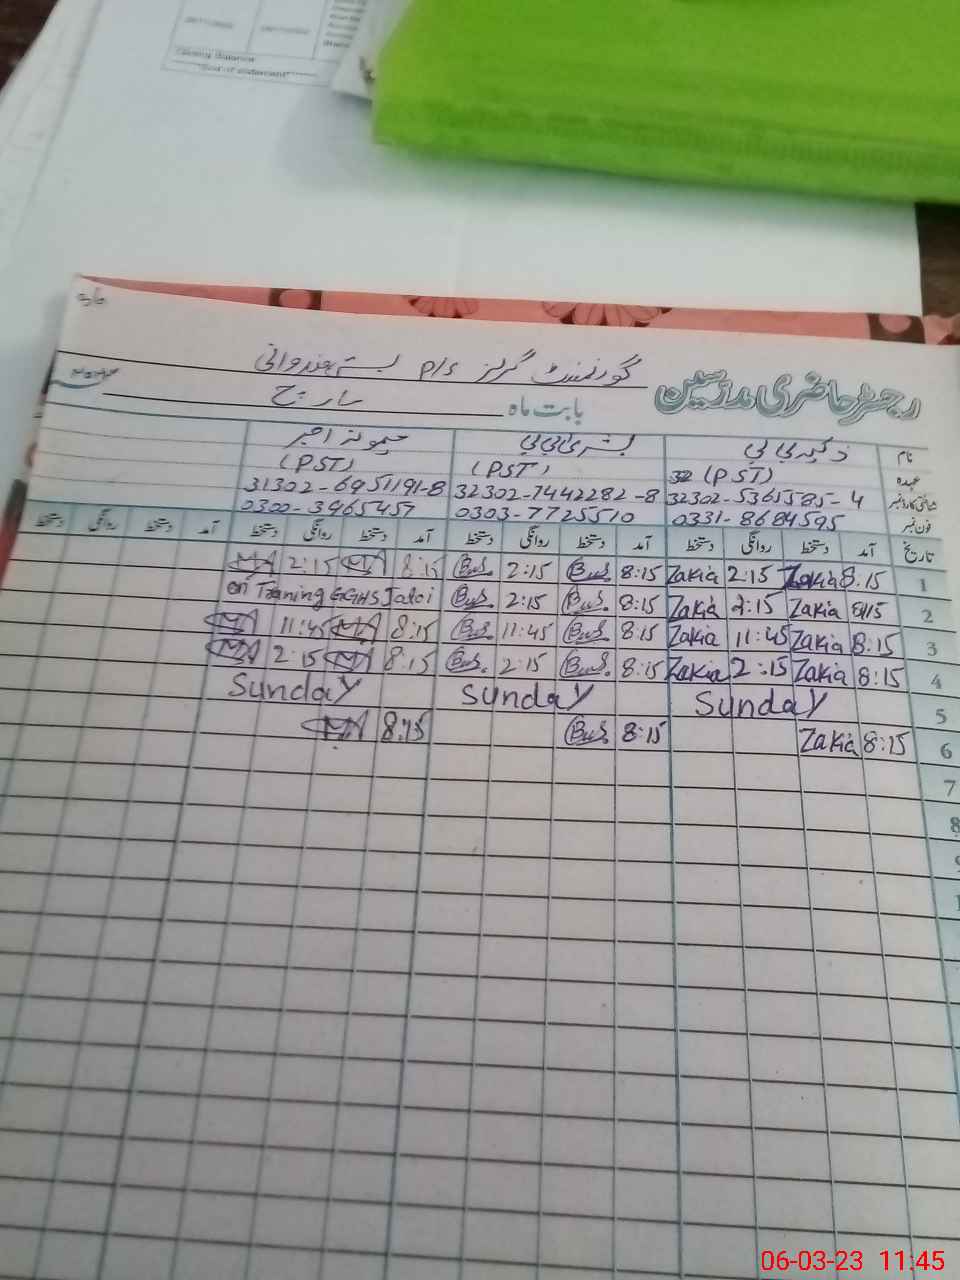 Closing Balance
گورنمنٹ گرلز P/S بستی ھندوانی
رجسٹر حاضری مدرسین
بابت ماہ مارچ
نام ذکیہ بی بی بشریٰ بی بی میمونہ
عہدہ 32 (PST) (PST) (PST)
شناختی کارڈ نمبر 32302-5361585-4 32302-7442282-8 31302-6951191-8
فون نمبر 0331-8684595 0303-7725510 0300-3965457
تاریخ آمد دستخط روانگی دستخط آمد دستخط روانگی دستخط آمد دستخط روانگی دستخط آمد دستخط روانگی دستخط
1 8:15 Zakia 2:15 Zakia 8:15 Bus. 2:15 Bus. 8:15 2:15
2 8:15 Zakia 2:15 Zakia 8:15 Bus. 2:15 Bus. on Traning GGHS Jatoi
3 8:15 Zakia 11:45 Zakia 8:15 Bus. 11:45 Bus. 8:15 11:45
4 8:15 Zakia 2:15 Zakia 8:15 Bus. 2:15 Bus. 8:15 2:15
5 Sunday Sunday Sunday
6 8:15 Zakia 8:15 Bus. 8:15
7
8
06-03-23 11:45